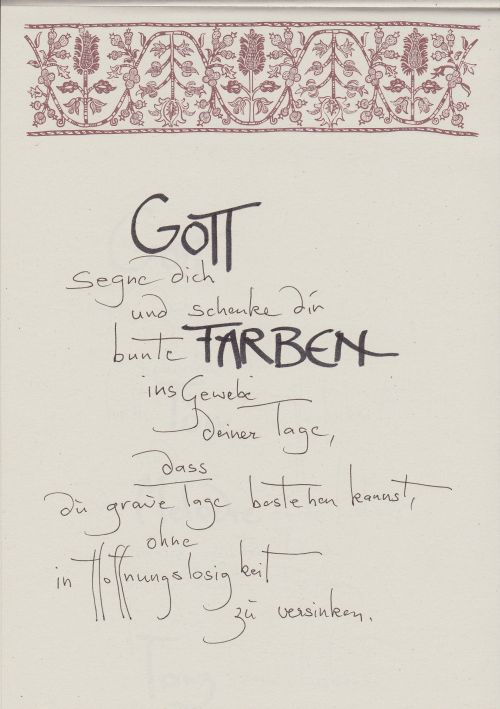 GOTT
segne dich
und schenke dir
bunte FARBEN
ins Gewebe
deiner Tage,
dass
du graue Tage bestehen kannst,
ohne
in Hoffnungslosigkeit
zu versinken.